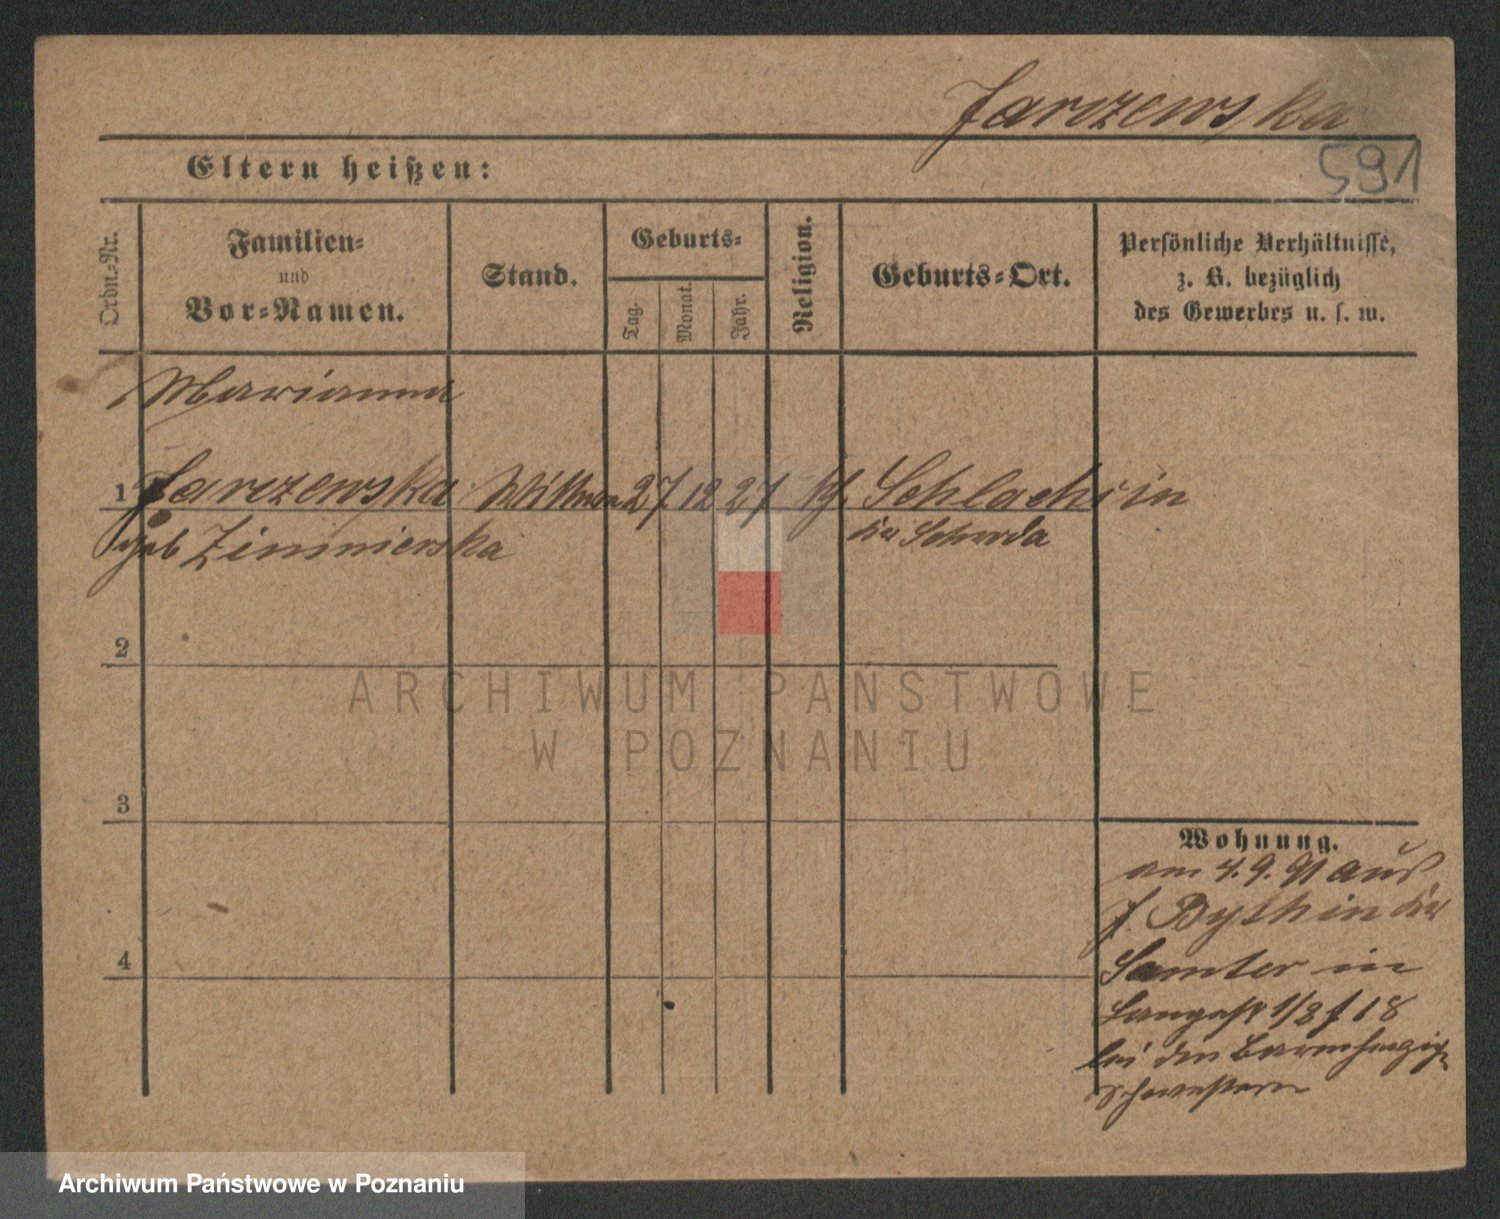 Jarczewska
591
Eltern heißen:
Ordn.-Nr.
Familien-
und
Vor-Namen.
Stand.
Geburts-
Tag.
Monat.
Jahr.
Religion.
Geburts-Ort.
Persönliche Verhältnisse,
z. B. bezüglich
des Gewerbes u. s. w.
Marianna
1 Jarczewska Wittwe 27 12 27 kf. Schlachcin
geb Zimnierska Kr Schroda
2
ARCHIWUM PAŃSTWOWE
W POZNANIU
3
Wohnung.
am 4. 9. 91 aus
Bythin Kr
4
Samter in
Langestr 1/2 f 18
bei den Barmherzig
Schwestern
Archiwum Państwowe w Poznaniu